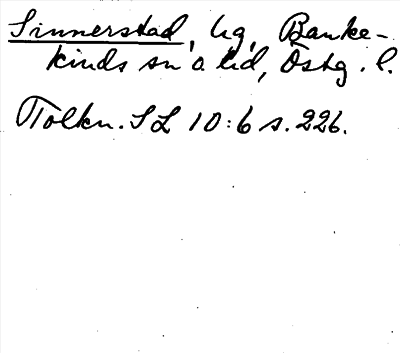 Sinnerstad, hg, Banke-
kinds sn o. hd, Östg. l.
Tolkn. SL 10:6 s. 226.